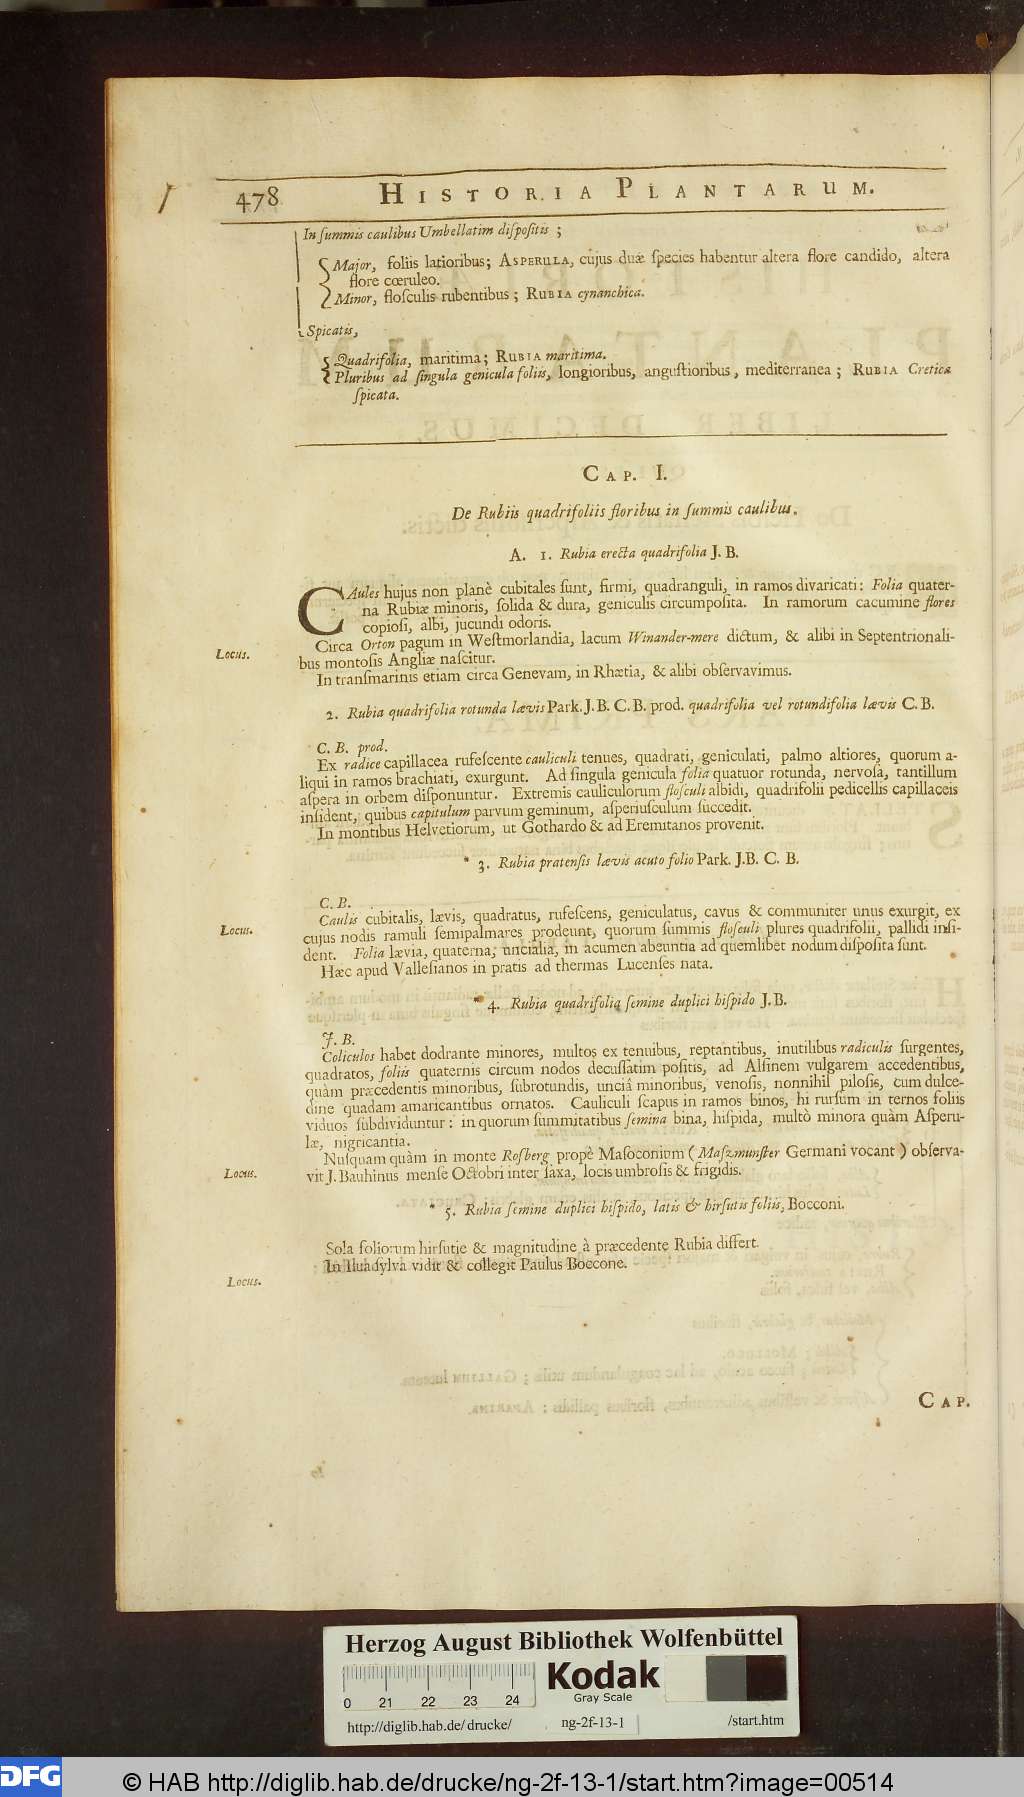 478
HISTORIA PLANTARUM.
In ſummis caulibus Umbellatim diſpoſitis ;
Major, foliis latioribus; ASPERULA, cujus duæ ſpecies habentur altera flore candido, altera
flore cœruleo.
Minor, floſculis rubentibus ; RUBIA cynanchica.
Spicatis,
Quadrifolia, maritima; RUBIA maritima.
Pluribus ad ſingula genicula foliis, longioribus, anguſtioribus, mediterranea ; RUBIA Cretica
ſpicata.
CAP. I.
De Rubiis quadrifoliis floribus in ſummis caulibus.
A. 1. Rubia erecta quadrifolia J. B.
CAules hujus non planè cubitales ſunt, firmi, quadranguli, in ramos divaricati: Folia quater-
na Rubiæ minoris, ſolida & dura, geniculis circumpoſita. In ramorum cacumine flores
copioſi, albi, jucundi odoris.
Locus.
Circa Orton pagum in Weſtmorlandia, lacum Winander-mere dictum, & alibi in Septentrionali-
bus montoſis Angliæ naſcitur.
In tranſmarinis etiam circa Genevam, in Rhætia, & alibi obſervavimus.
2. Rubia quadrifolia rotunda lævis Park. J. B. C. B. prod. quadrifolia vel rotundifolia lævis C. B.
C. B. prod.
Ex radice capillacea rufeſcente cauliculi tenues, quadrati, geniculati, palmo altiores, quorum a-
liqui in ramos brachiati, exurgunt. Ad ſingula genicula folia quatuor rotunda, nervoſa, tantillum
aſpera in orbem diſponuntur. Extremis cauliculorum floſculi albidi, quadrifolii pedicellis capillaceis
inſident, quibus capitulum parvum geminum, aſperiuſculum ſuccedit.
In montibus Helvetiorum, ut Gothardo & ad Eremitanos provenit.
* 3. Rubia pratenſis lævis acuto folio Park. J.B. C. B.
C. B.
Caulis cubitalis, lævis, quadratus, rufeſcens, geniculatus, cavus & communiter unus exurgit, ex
Locus.
cujus nodis ramuli ſemipalmares prodeunt, quorum ſummis floſculi plures quadrifolii, pallidi inſi-
dent. Folia lævia, quaterna, uncialia, in acumen abeuntia ad quemlibet nodum diſpoſita ſunt.
Hæc apud Valleſianos in pratis ad thermas Lucenſes nata.
* 4. Rubia quadrifolia ſemine duplici hiſpido J. B.
J. B.
Coliculos habet dodrante minores, multos ex tenuibus, reptantibus, inutilibus radiculis ſurgentes,
quadratos, foliis quaternis circum nodos decuſſatim poſitis, ad Alſinem vulgarem accedentibus,
quàm præcedentis minoribus, ſubrotundis, unciâ minoribus, venoſis, nonnihil piloſis, cum dulce-
dine quadam amaricantibus ornatos. Cauliculi ſcapus in ramos binos, hi rurſum in ternos foliis
viduos ſubdividuntur : in quorum ſummitatibus ſemina bina, hiſpida, multò minora quàm Aſperu-
læ, nigricantia.
Nuſquam quàm in monte Rosberg propè Maſoconium ( Maſzmunſter Germani vocant ) obſerva-
Locus.
vit J. Bauhinus menſe Octobri inter ſaxa, locis umbroſis & frigidis.
* 5. Rubia ſemine duplici hiſpido, latis & hirſutis foliis, Bocconi.
Sola foliorum hirſutie & magnitudine à præcedente Rubia differt.
In Iluaſylva vidit & collegit Paulus Boccone.
Locus.
CAP.
Herzog August Bibliothek Wolfenbüttel
0 21 22 23 24
Kodak
Gray Scale
http://diglib.hab.de/drucke/ ng-2f-13-1 /start.htm
DFG
© HAB http://diglib.hab.de/drucke/ng-2f-13-1/start.htm?image=00514